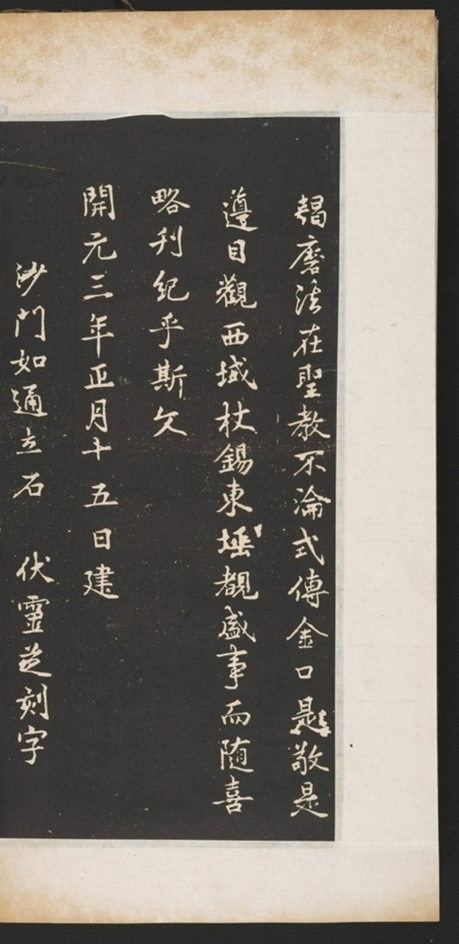 羯磨法在聖教不淪式傳金口是敬是
遵目觀西域杖錫東埵覩盛事而随喜
略刊紀乎斯文
開元三年正月十五日建
沙門如通立石　伏靈芝刻字